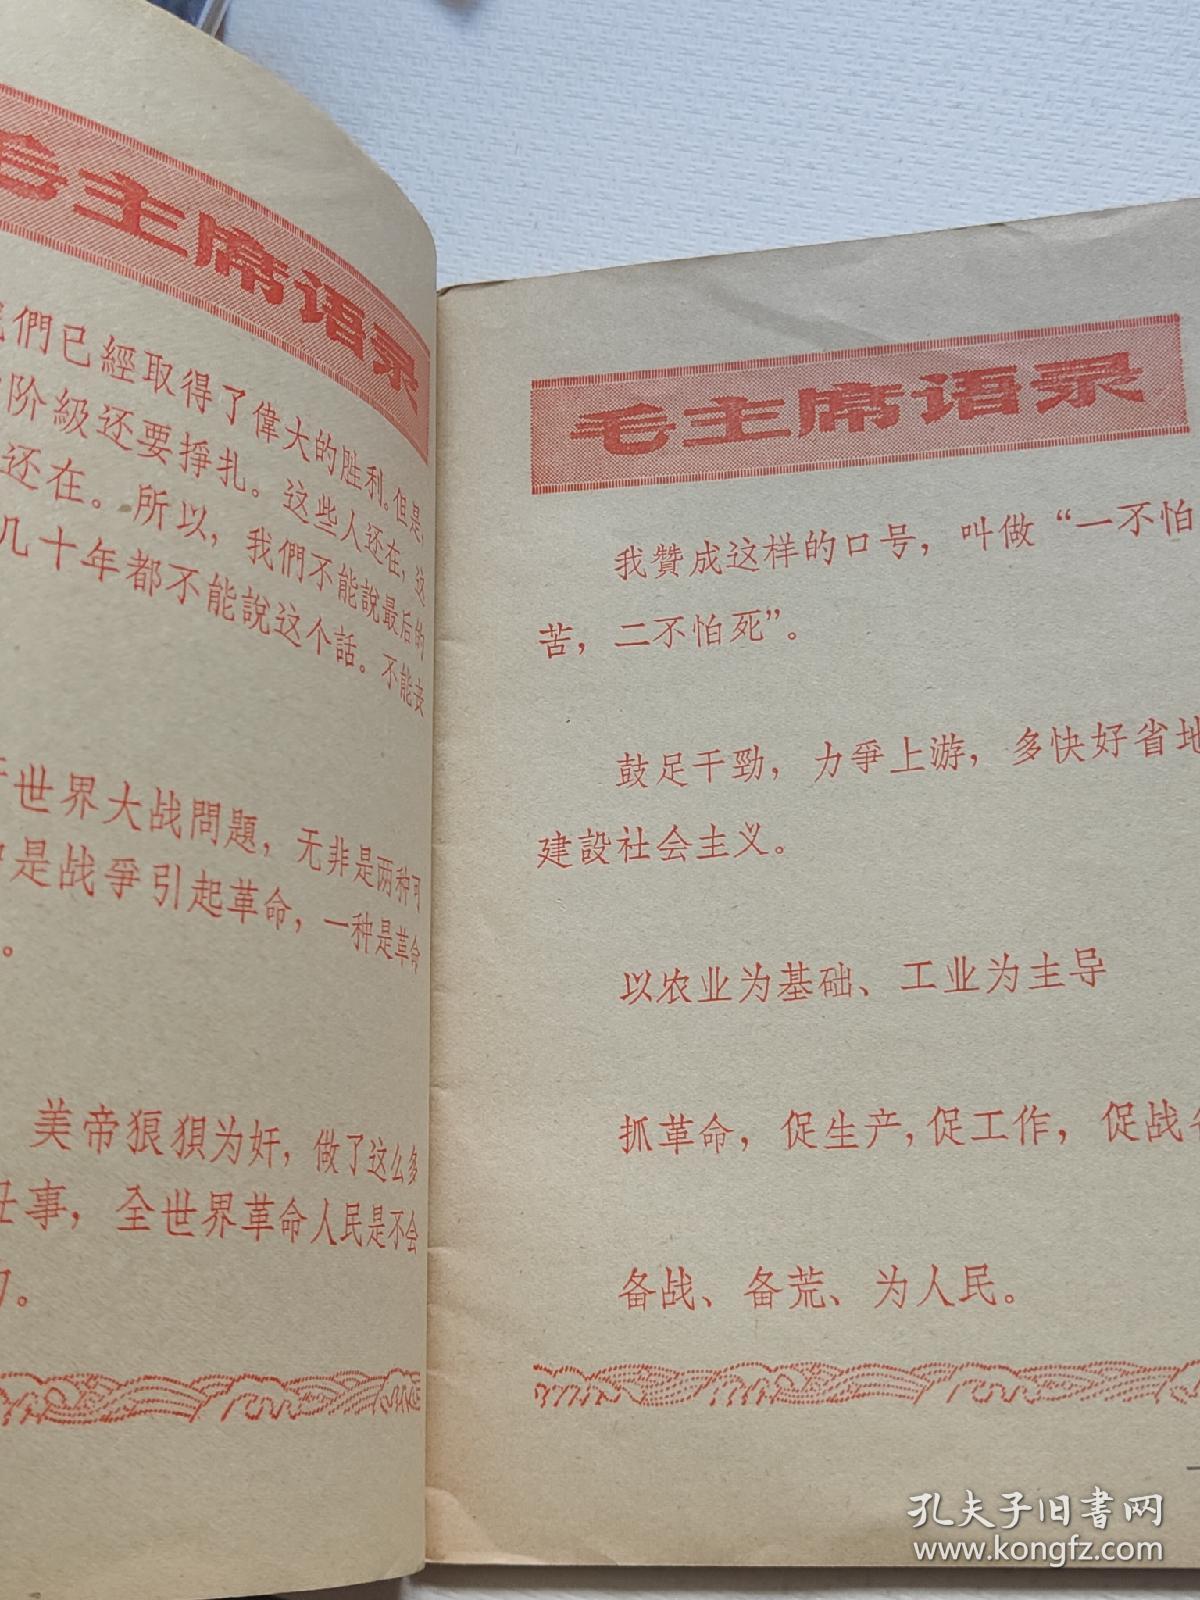 毛主席语录
們已經取得了偉大的胜利。但是,
阶級还要掙扎。这些人还在,这
还在。所以,我們不能說最后的
几十年都不能說这个話。不能丧
世界大战問題,无非是两种可
是战爭引起革命,一种是革命
。
美帝狼狽为奸,做了这么多
事,全世界革命人民是不会
。
毛主席语录
我贊成这样的口号,叫做“一不怕
苦,二不怕死”。
鼓足干勁,力爭上游,多快好省地
建設社会主义。
以农业为基础、工业为主导
抓革命,促生产,促工作,促战
备战、备荒、为人民。
孔夫子旧书网
www.kongfz.com